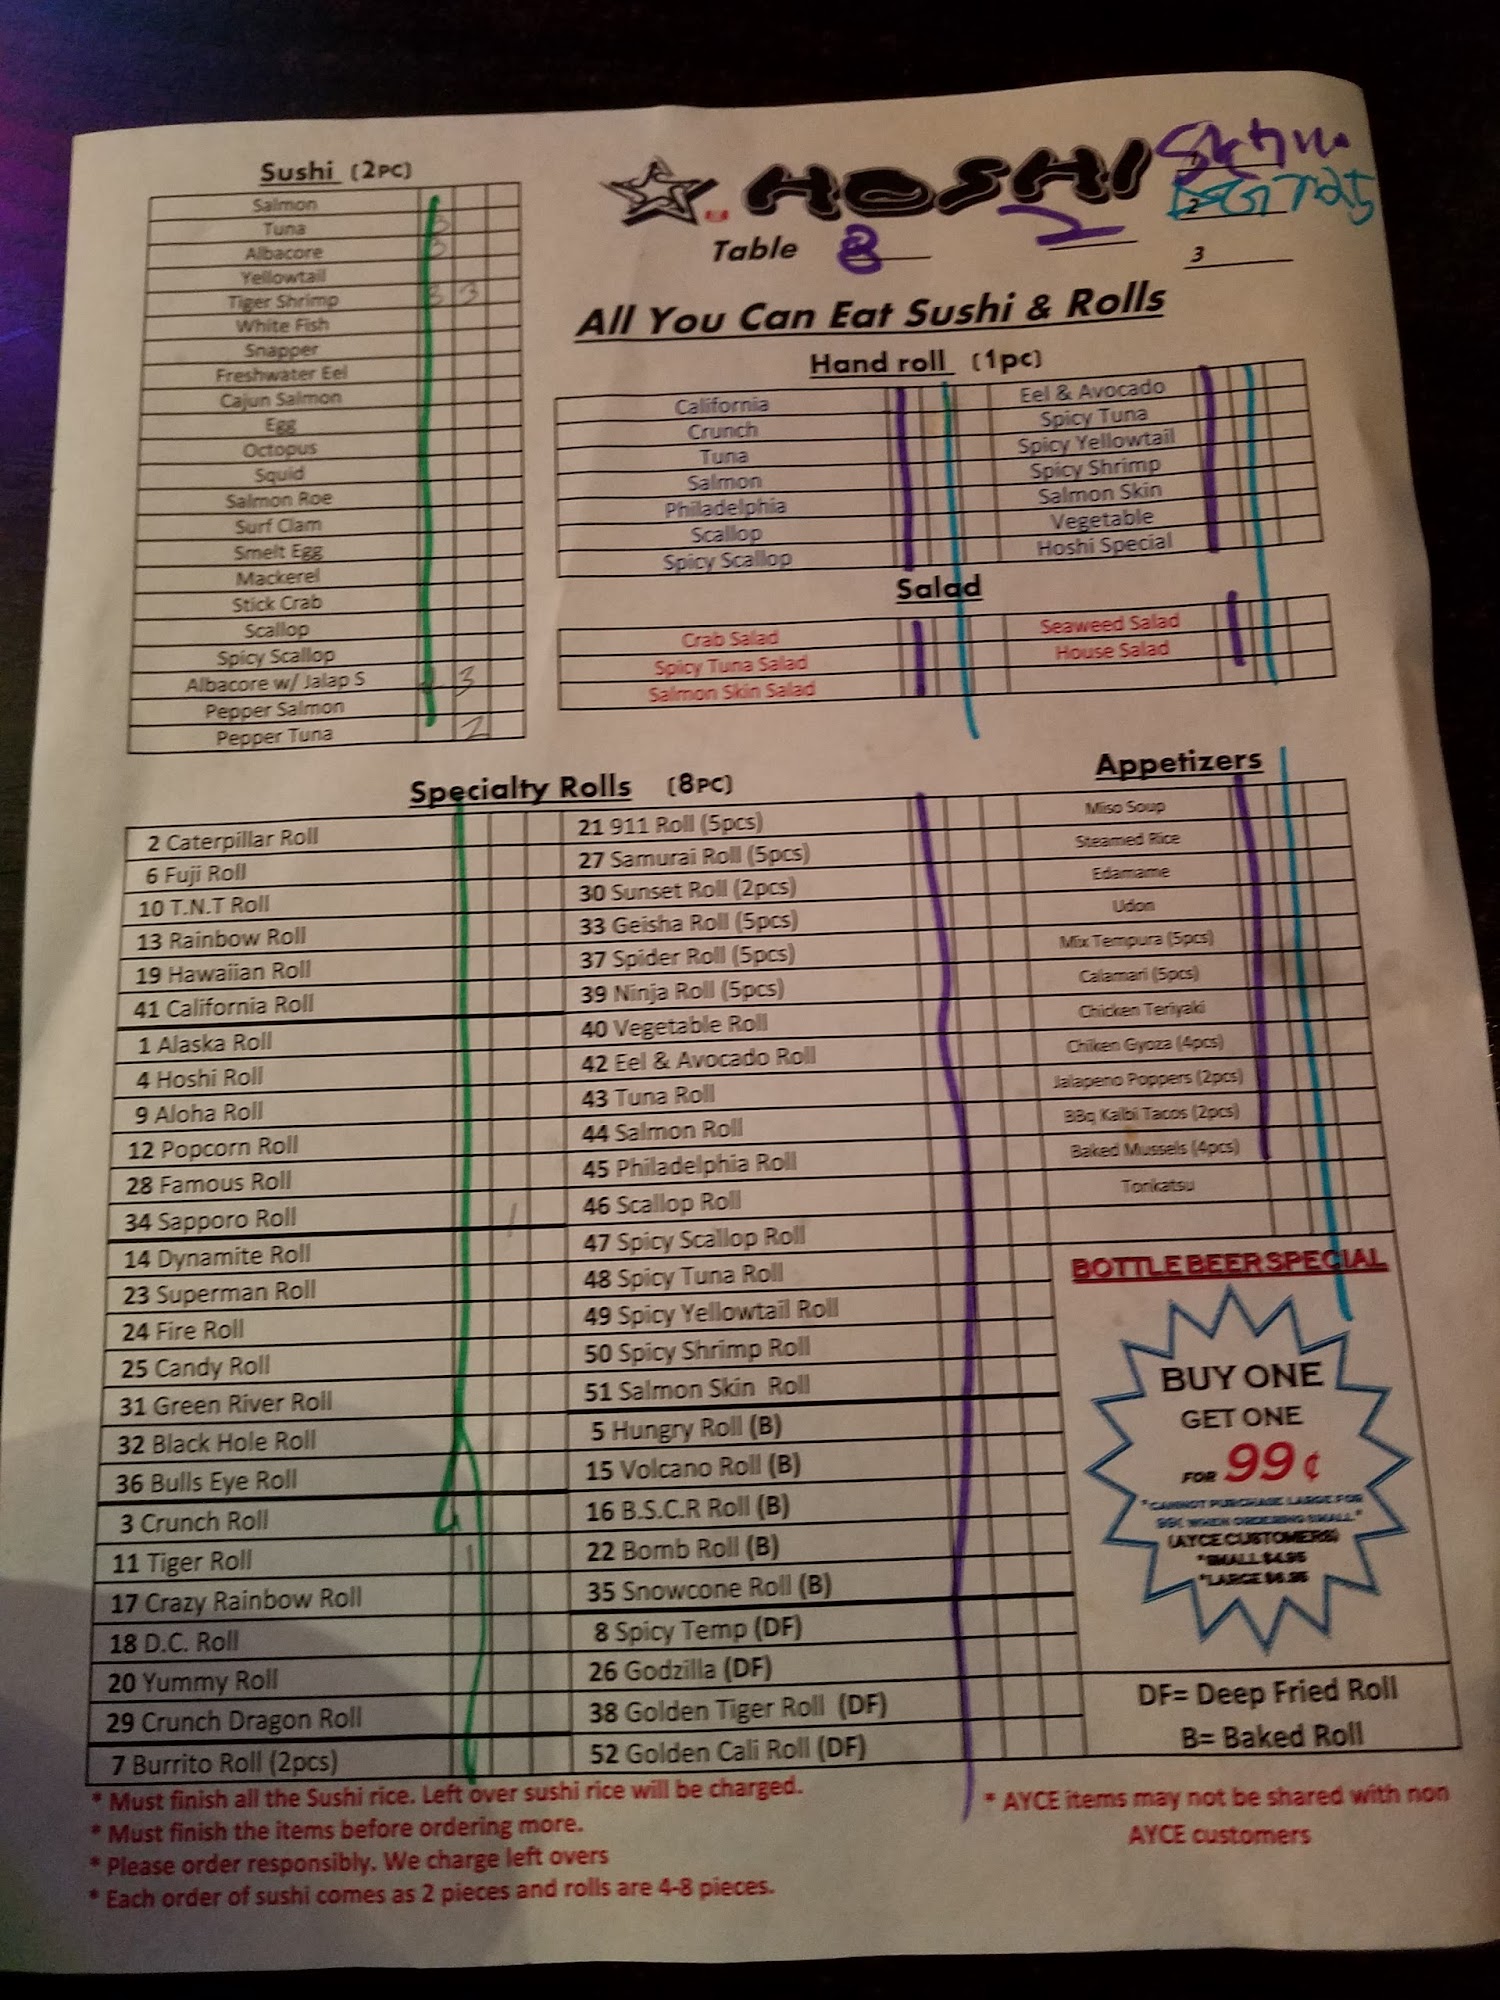 HOSHI
Table 8 2
2
3
All You Can Eat Sushi & Rolls
Sushi (2PC)
Salmon
Tuna 3
Albacore 3
Yellowtail
Tiger Shrimp 3 3
White Fish
Snapper
Freshwater Eel
Cajun Salmon
Egg
Octopus
Squid
Salmon Roe
Surf Clam
Smelt Egg
Mackerel
Stick Crab
Scallop
Spicy Scallop
Albacore w/ Jalap S 3
Pepper Salmon
Pepper Tuna 2
Hand roll (1PC)
California
Crunch
Tuna
Salmon
Philadelphia
Scallop
Spicy Scallop
Eel & Avocado
Spicy Tuna
Spicy Yellowtail
Spicy Shrimp
Salmon Skin
Vegetable
Hoshi Special
Salad
Crab Salad
Spicy Tuna Salad
Salmon Skin Salad
Seaweed Salad
House Salad
Specialty Rolls (8PC)
2 Caterpillar Roll
6 Fuji Roll
10 T.N.T Roll
13 Rainbow Roll
19 Hawaiian Roll
41 California Roll
1 Alaska Roll
4 Hoshi Roll
9 Aloha Roll
12 Popcorn Roll
28 Famous Roll
34 Sapporo Roll 1
14 Dynamite Roll
23 Superman Roll
24 Fire Roll
25 Candy Roll
31 Green River Roll
32 Black Hole Roll
36 Bulls Eye Roll
3 Crunch Roll
11 Tiger Roll 1
17 Crazy Rainbow Roll
18 D.C. Roll
20 Yummy Roll
29 Crunch Dragon Roll
7 Burrito Roll (2pcs)
21 911 Roll (5pcs)
27 Samurai Roll (5pcs)
30 Sunset Roll (2pcs)
33 Geisha Roll (5pcs)
37 Spider Roll (5pcs)
39 Ninja Roll (5pcs)
40 Vegetable Roll
42 Eel & Avocado Roll
43 Tuna Roll
44 Salmon Roll
45 Philadelphia Roll
46 Scallop Roll
47 Spicy Scallop Roll
48 Spicy Tuna Roll
49 Spicy Yellowtail Roll
50 Spicy Shrimp Roll
51 Salmon Skin Roll
5 Hungry Roll (B)
15 Volcano Roll (B)
16 B.S.C.R Roll (B)
22 Bomb Roll (B)
35 Snowcone Roll (B)
8 Spicy Temp (DF)
26 Godzilla (DF)
38 Golden Tiger Roll (DF)
52 Golden Cali Roll (DF)
Appetizers
Miso Soup
Steamed Rice
Edamame
Udon
Mix Tempura (5pcs)
Calamari (5pcs)
Chicken Teriyaki
Chiken Gyoza (4pcs)
Jalapeno Poppers (2pcs)
BBq Kalbi Tacos (2pcs)
Baked Mussels (4pcs)
Tonkatsu
BOTTLE BEER SPECIAL
BUY ONE
GET ONE
FOR 99¢
*CANNOT PURCHASE LARGE FOR
99¢ WHEN ORDERING SMALL*
(AYCE CUSTOMERS)
*SMALL $4.95
*LARGE $6.95
DF= Deep Fried Roll
B= Baked Roll
* Must finish all the Sushi rice. Left over sushi rice will be charged.
* Must finish the items before ordering more.
* Please order responsibly. We charge left overs
* Each order of sushi comes as 2 pieces and rolls are 4-8 pieces.
* AYCE items may not be shared with non
AYCE customers